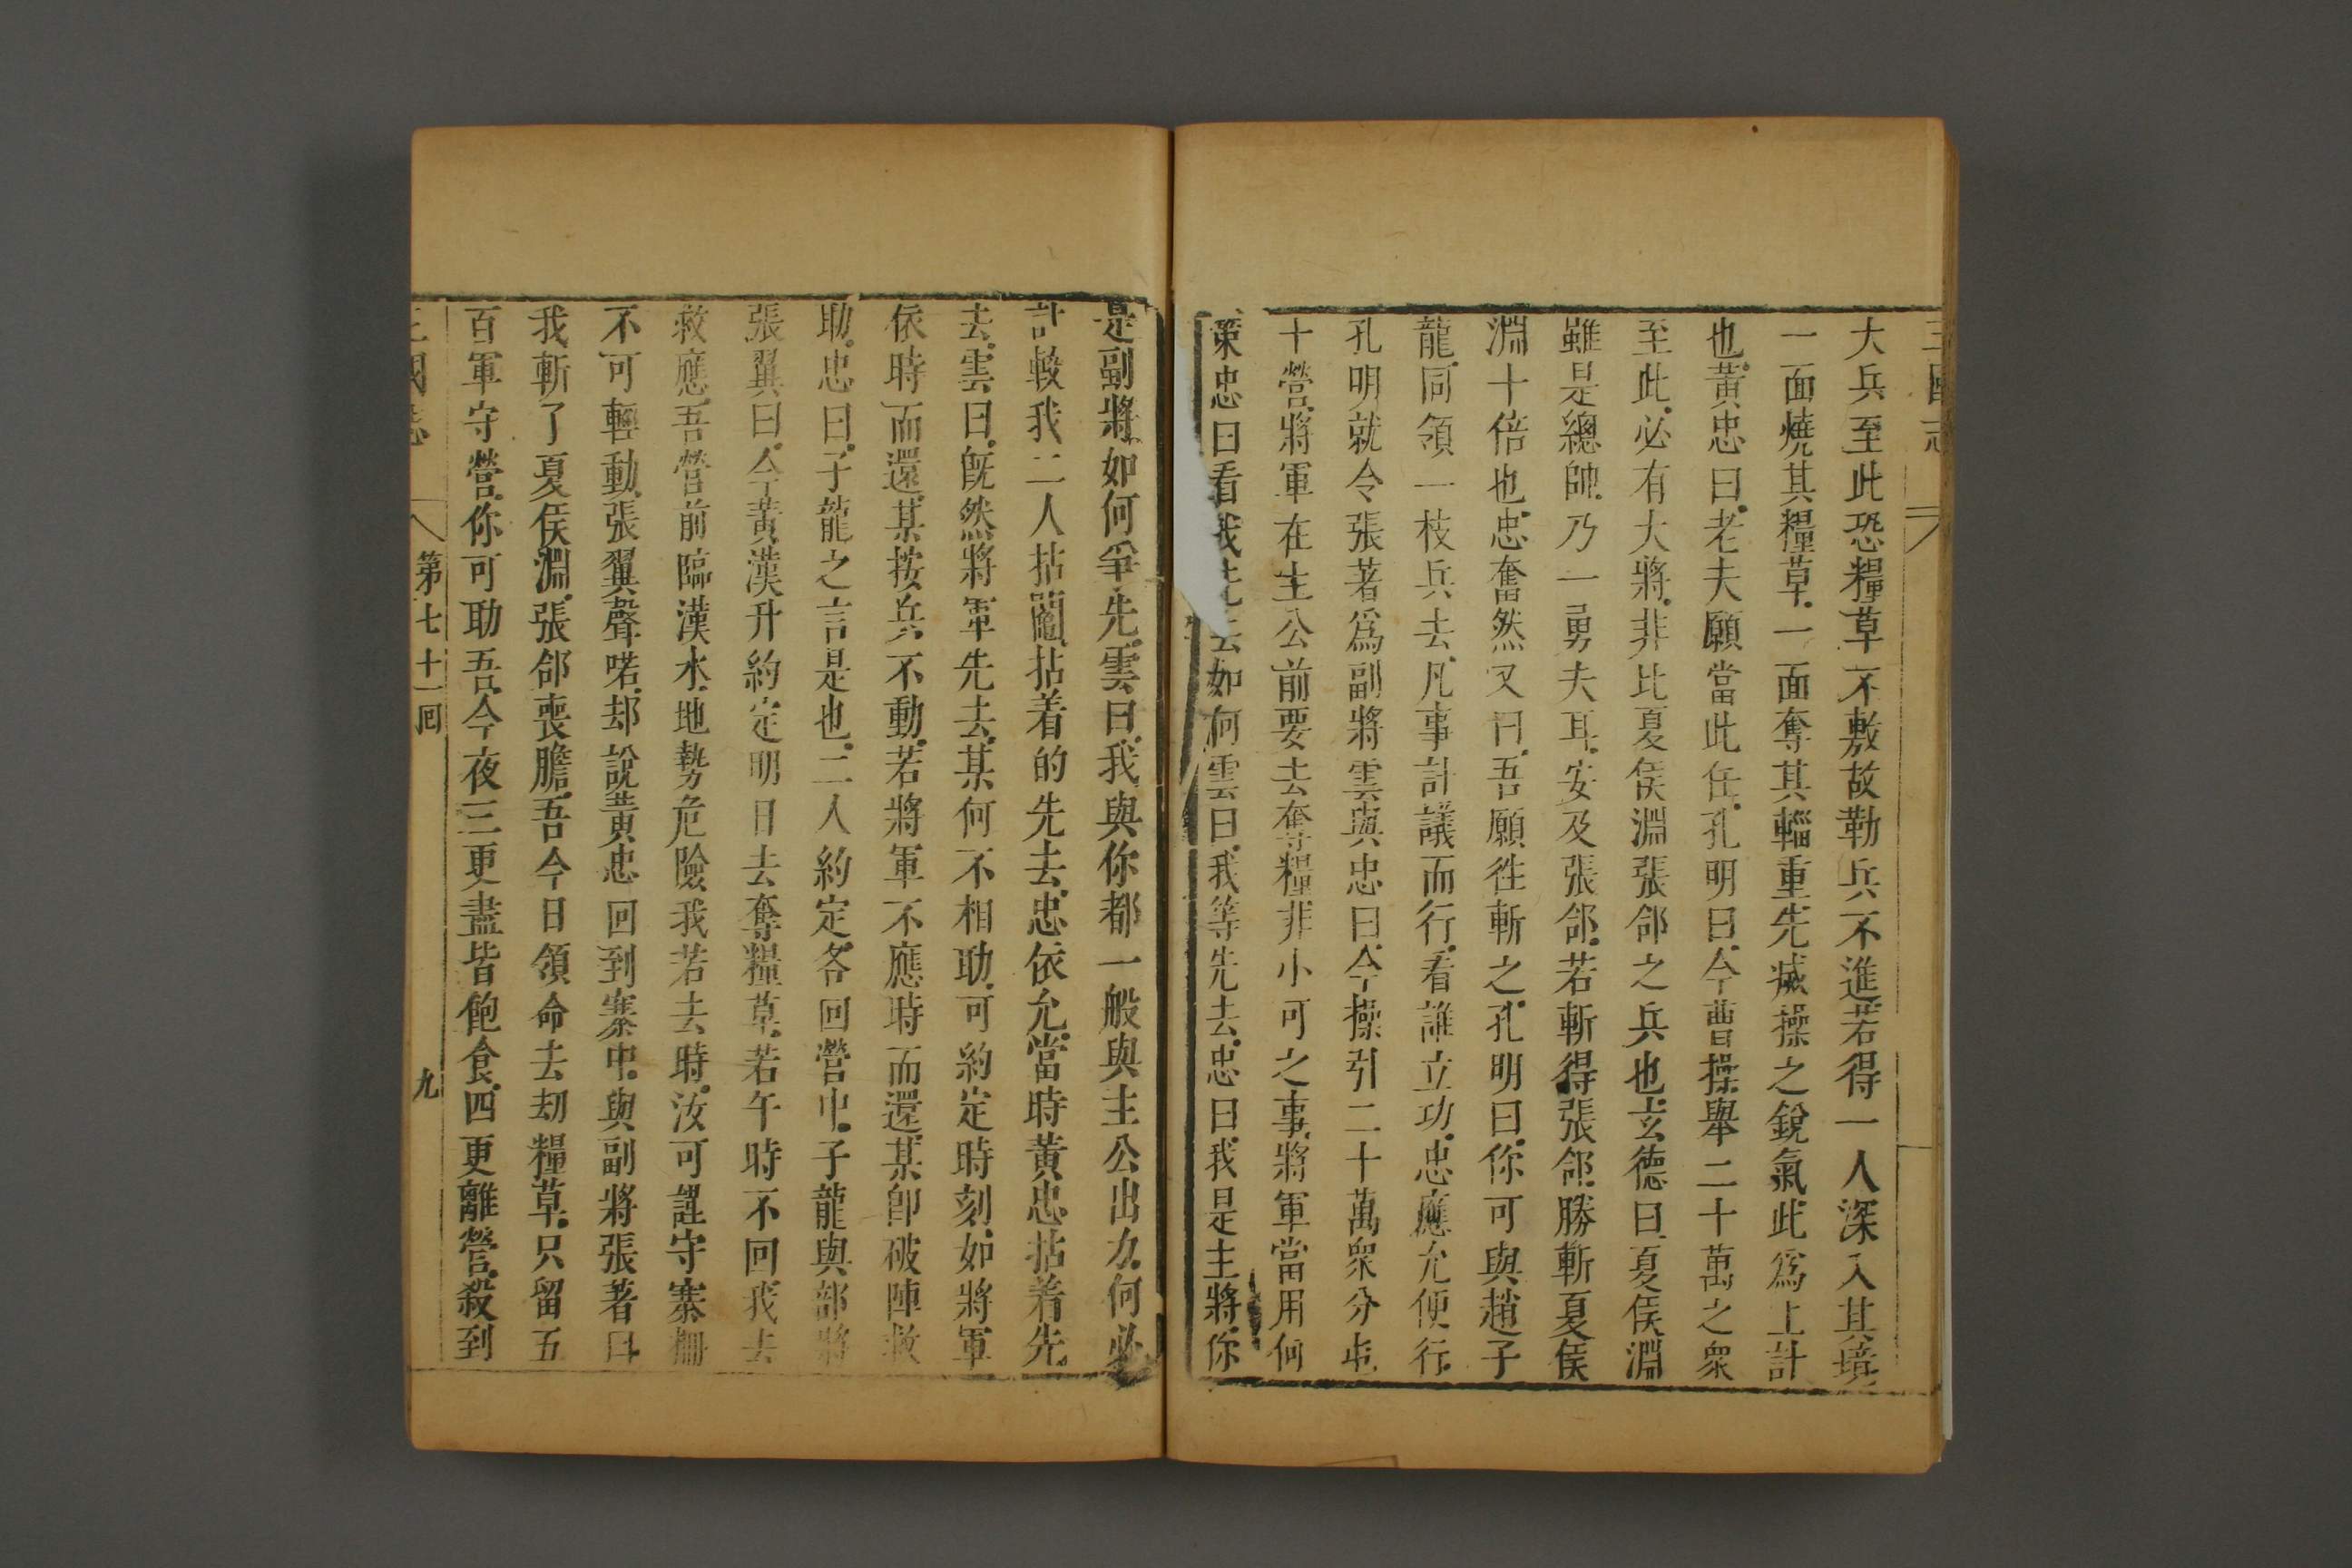 三國志
大兵至此恐糧草不敷故勒兵不進若得一人深入其境
一面燒其糧草一面奪其輜重先滅操之銳氣此爲上計
也黃忠曰老夫願當此任孔明曰今曹操舉二十萬之衆
至此必有大將非比夏侯淵張郃之兵也玄德曰夏侯淵
雖是總帥乃一勇夫耳安及張郃若斬得張郃勝斬夏侯
淵十倍也忠奮然又曰吾願徃斬之孔明曰你可與趙子
龍同領一枝兵去凡事計議而行看誰立功忠應允便行
孔明就令張著爲副將雲與忠曰今操引二十萬衆分屯
十營將軍在主公前要去奪糧非小可之事將軍當用何
策忠曰看我先去如何雲曰我等先去忠曰我是主將你
是副將如何爭先雲曰我與你都一般與主公出力何必
計較我二人拈鬮拈着的先去忠依允當時黃忠拈着先
去雲曰旣然將軍先去某何不相助可約定時刻如將軍
依時而還某按兵不動若將軍不應時而還某卽破陣救
助忠曰子龍之言是也二人約定各回營中子龍與部將
張翼曰今黃漢升約定明日去奪糧草若午時不回我去
救應吾營前臨漢水地勢危險我若去時汝可謹守寨柵
不可輕動張翼聲喏却說黃忠回到寨中與副將張著曰
我斬了夏侯淵張郃喪膽吾今日領命去刼糧草只留五
百軍守營你可助吾今夜三更盡皆飽食四更離營殺到
三國志 第七十一回 九